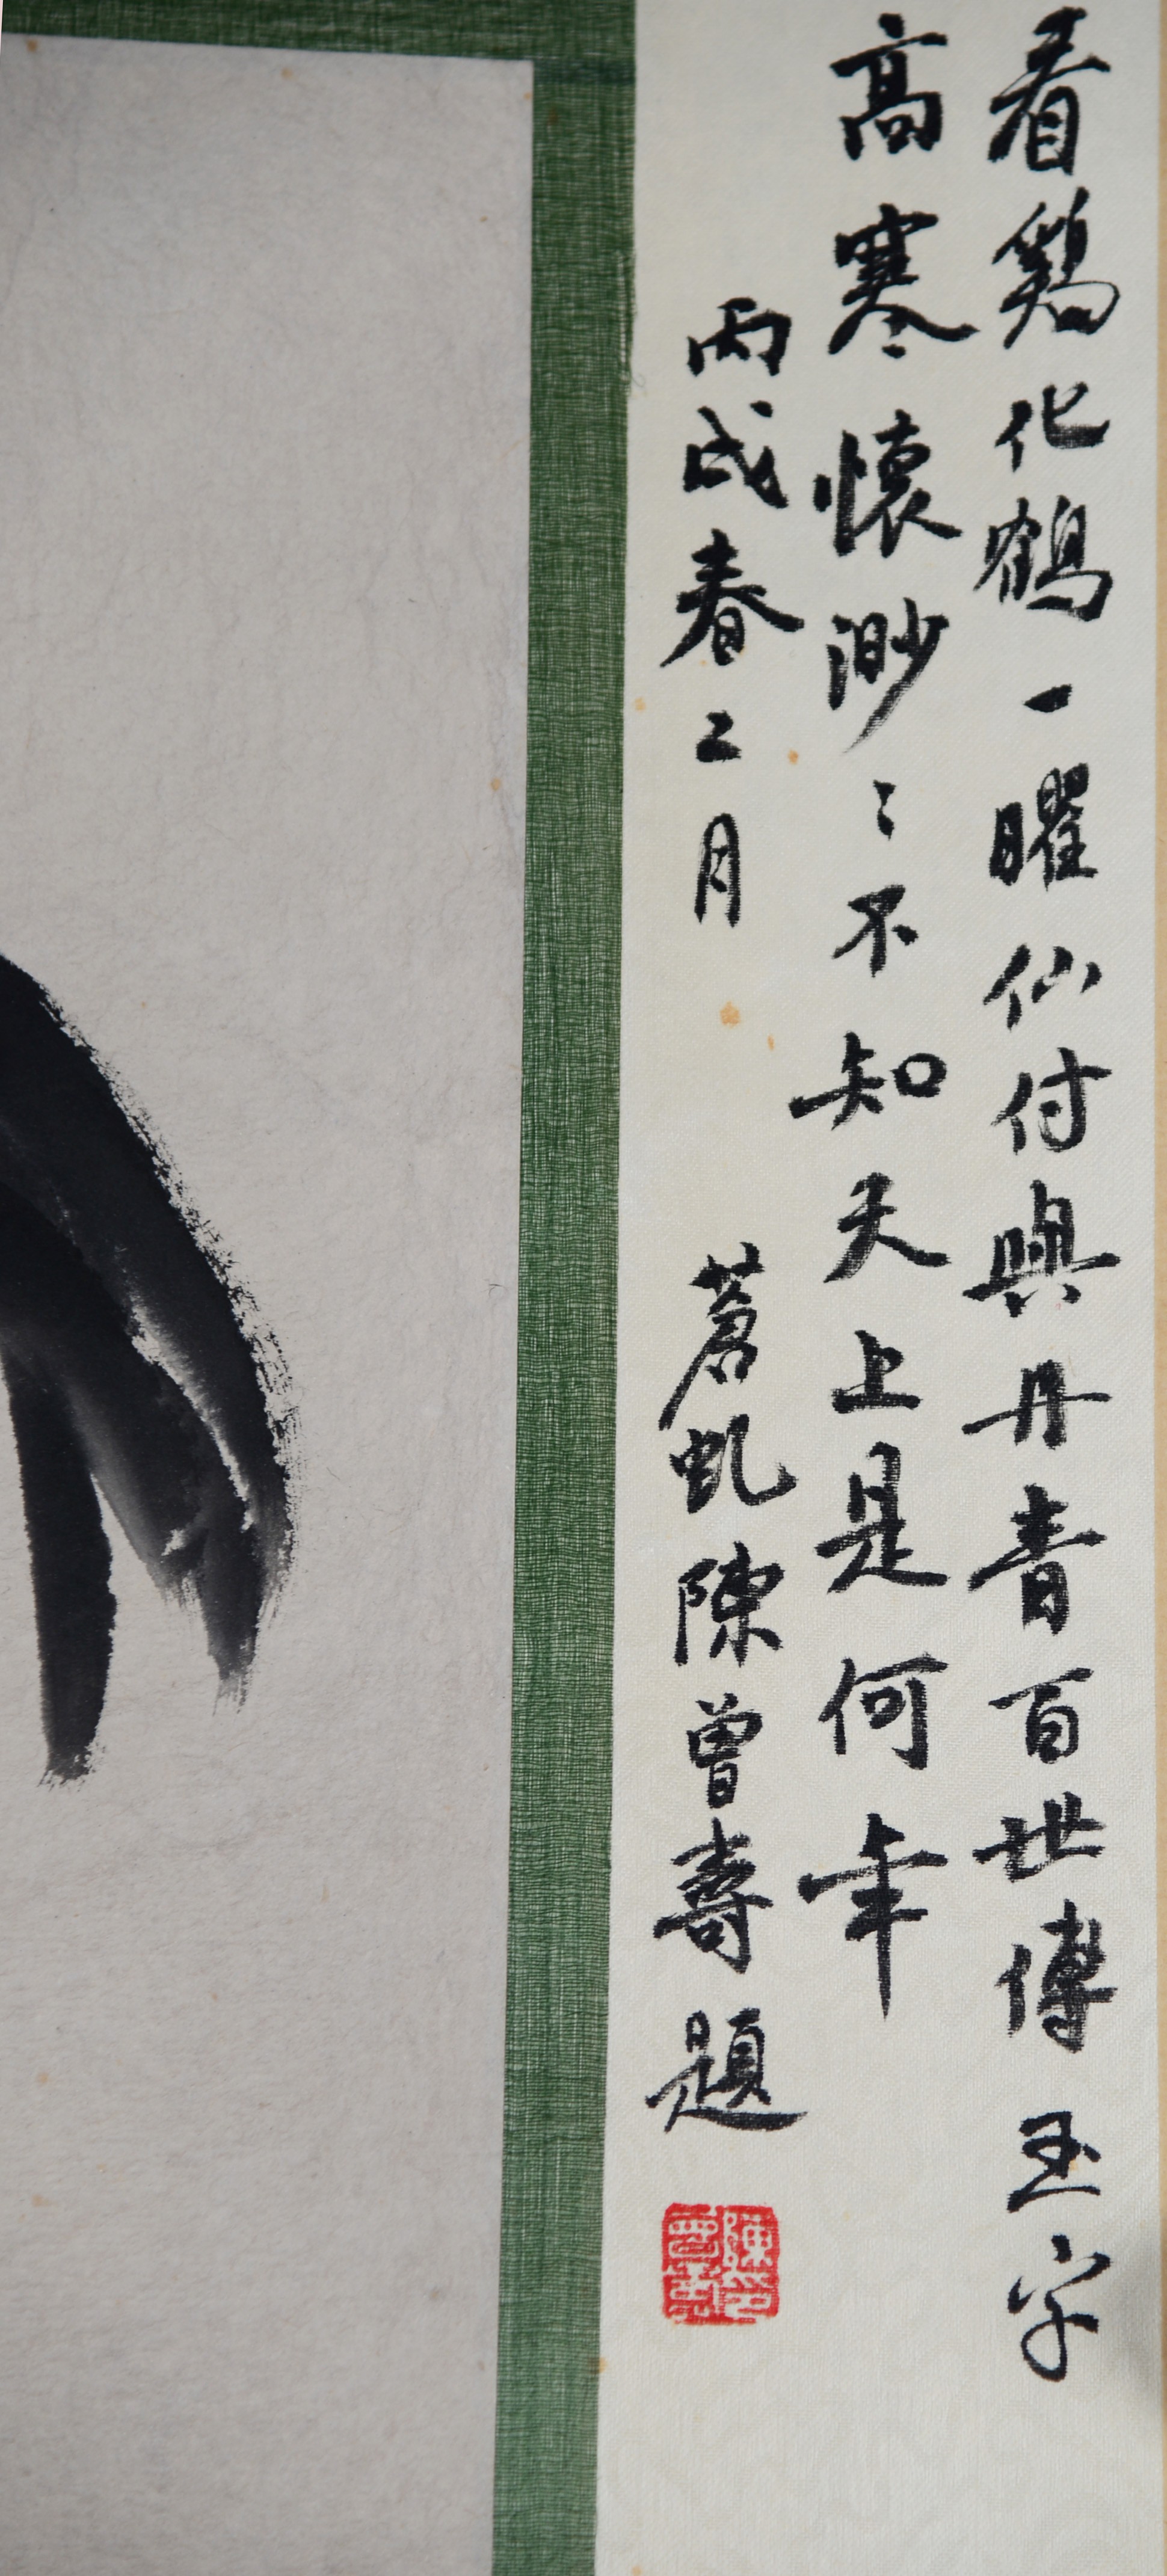 看鷄化鶴一曜仙付與丹青百世傳玉字
高寒懷渺〻不知天上是何年
丙戌春二月 蒼虬陳曾壽題
陳曾壽印